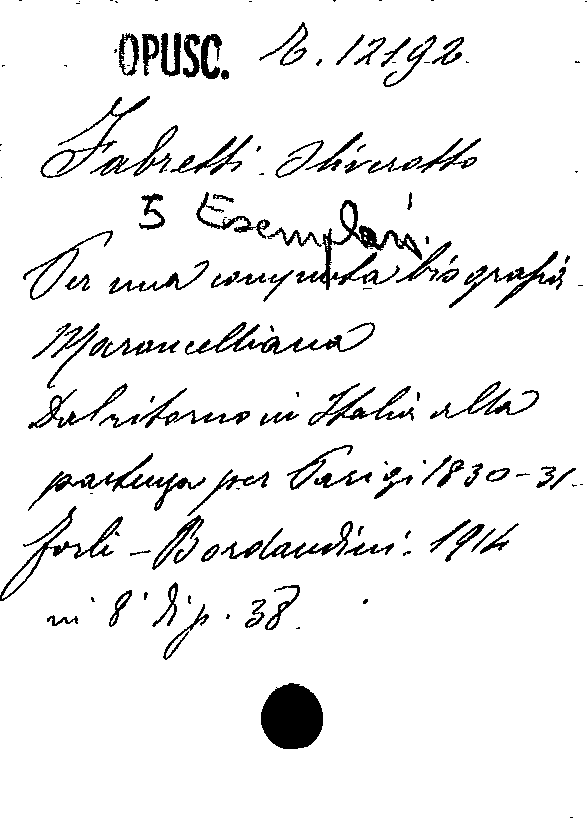 OPUSC. R. 12192
Fabretti Oliverotto
5 Esemplari.
Per una compiuta biografia
Maroncelliana
Dal ritorno in Italia alla
partenza per Parigi 1830-31
Forlì - Bordandini. 1914
in 8° di p. 38.